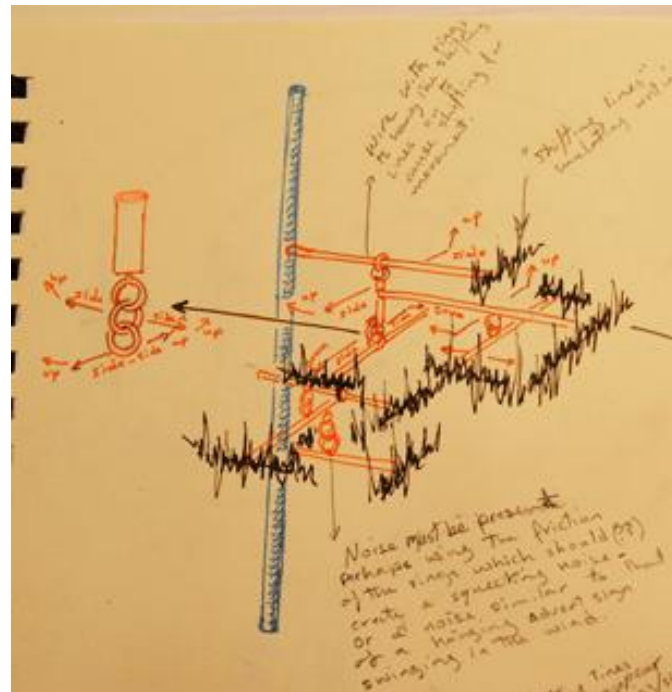 wire with rings
to hang the shifting
lines on to
cause shifting for
movement.
"shifting lines"
up
side
up
side
up
side
up
side
side
up
up
up
side - side
up
Noise must be present
perhaps using the friction
of the rings which should (??)
create a squeeking noise -
or a noise similar to that
of a hanging advert sign
swinging in the wind.
lines